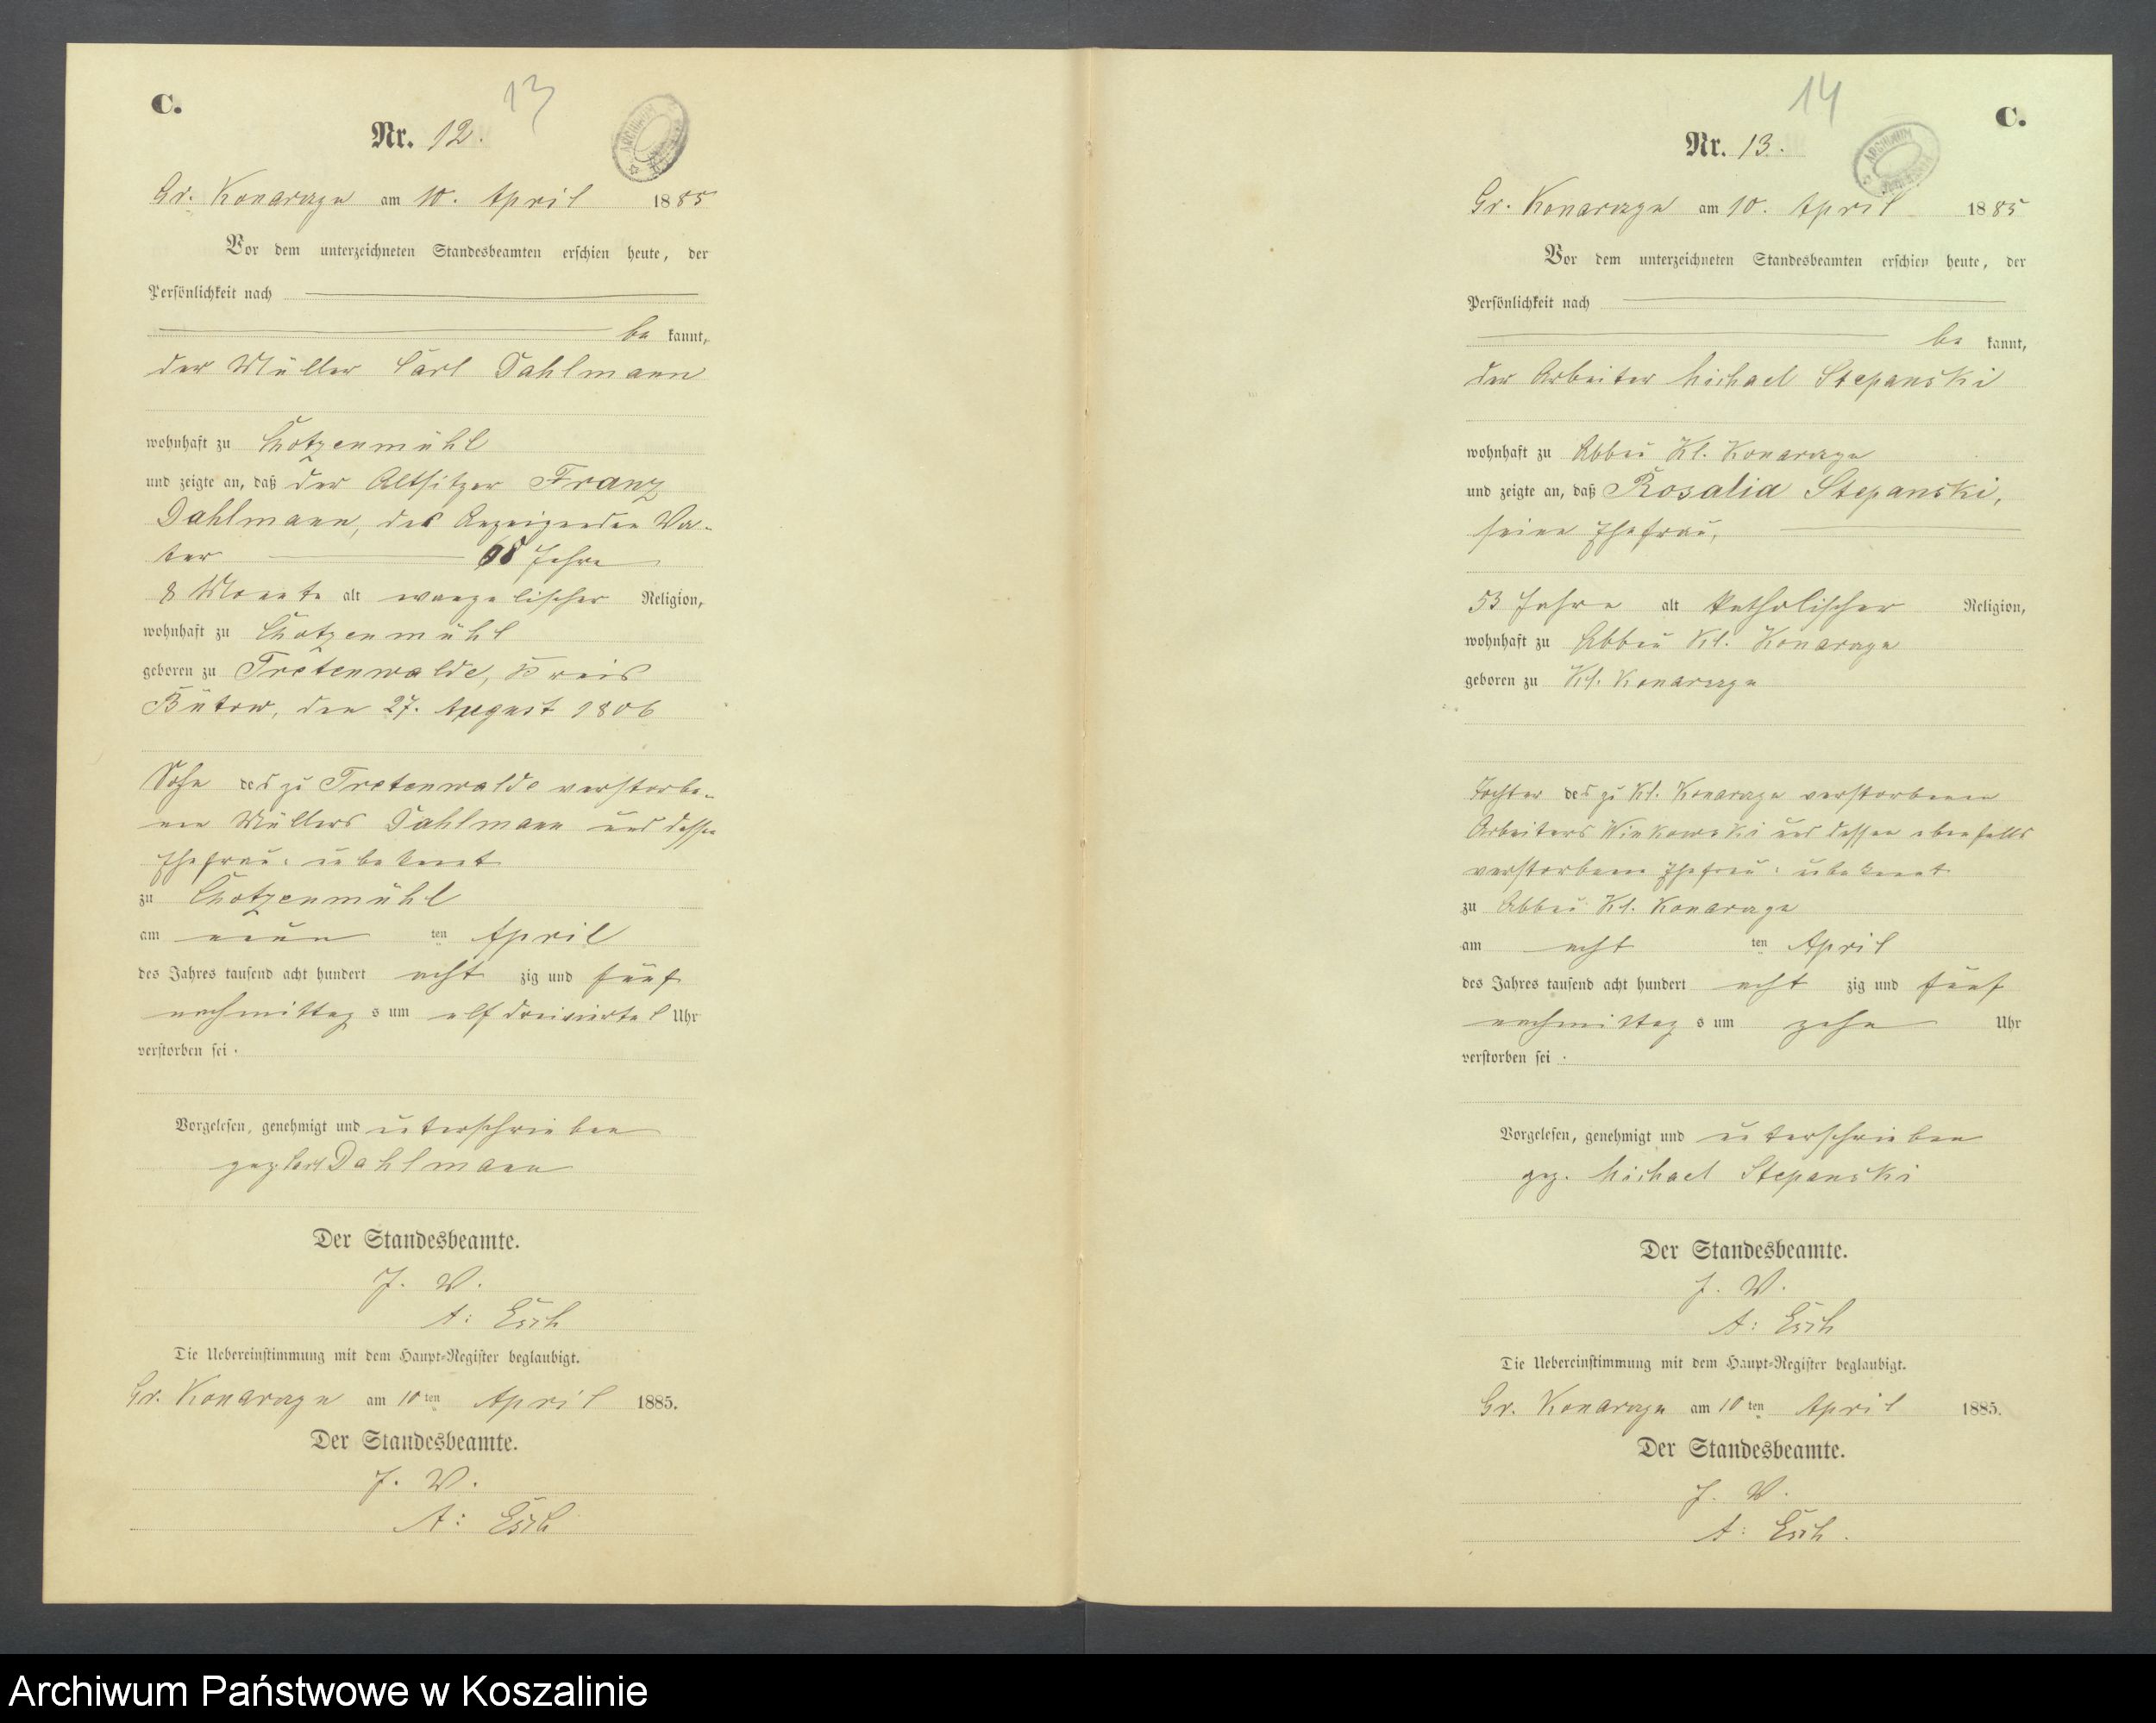 13
C.
Nr. 12.
Gr. Konarczyn am 10. April 1885
Vor dem unterzeichneten Standesbeamten erschien heute, der
Persönlichkeit nach
be kannt,
der Müller Carl Dahlmann
wohnhaft zu Chotzenmühl
und zeigte an, daß der Altsitzer Franz
Dahlmann, des Anzeigenden Va-
ter Jahre
8 Monate alt evangelischer Religion,
wohnhaft zu Chotzenmühl
geboren zu Kreis
Bütow, den 27. August 1806
Sohn des zu verstorbe-
nen Müllers Dahlmann und dessen
Ehefrau: unbekannt
zu Chotzenmühl
am neun ten April
des Jahres tausend acht hundert acht zig und fünf
nachmittag s um elf dreiviertel Uhr
verstorben sei.
Vorgelesen, genehmigt und unterschrieben
gez. Carl Dahlmann
Der Standesbeamte.
J. V.
A: Esch
Die Uebereinstimmung mit dem Haupt-Register beglaubigt.
Gr. Konarczyn am 10 ten April 1885.
Der Standesbeamte.
J. V.
A: Esch
14
C.
Nr. 13.
ARCHIWUM
Gr. Konarczyn am 10. April 1885
Vor dem unterzeichneten Standesbeamten erschien heute, der
Persönlichkeit nach
be kannt,
der Arbeiter Michael Stepanski
wohnhaft zu Abbau Kl. Konarczyn
und zeigte an, daß Rosalia Stepanski,
seine Ehefrau,
53 Jahre alt katholischer Religion,
wohnhaft zu Abbau Kl. Konarczyn
geboren zu Kl. Konarczyn
Tochter des zu Kl. Konarczyn verstorbenen
Arbeiters Winkowski und dessen ebenfalls
verstorbene Ehefrau: unbekannt
zu Abbau Kl. Konarczyn
am acht ten April
des Jahres tausend acht hundert acht zig und fünf
nachmittag s um zehn Uhr
verstorben sei.
Vorgelesen, genehmigt und unterschrieben
gez. Michael Stepanski
Der Standesbeamte.
J. V.
A: Esch
Die Uebereinstimmung mit dem Haupt-Register beglaubigt.
Gr. Konarczyn am 10 ten April 1885.
Der Standesbeamte.
J. V.
A: Esch.
Archiwum Państwowe w Koszalinie